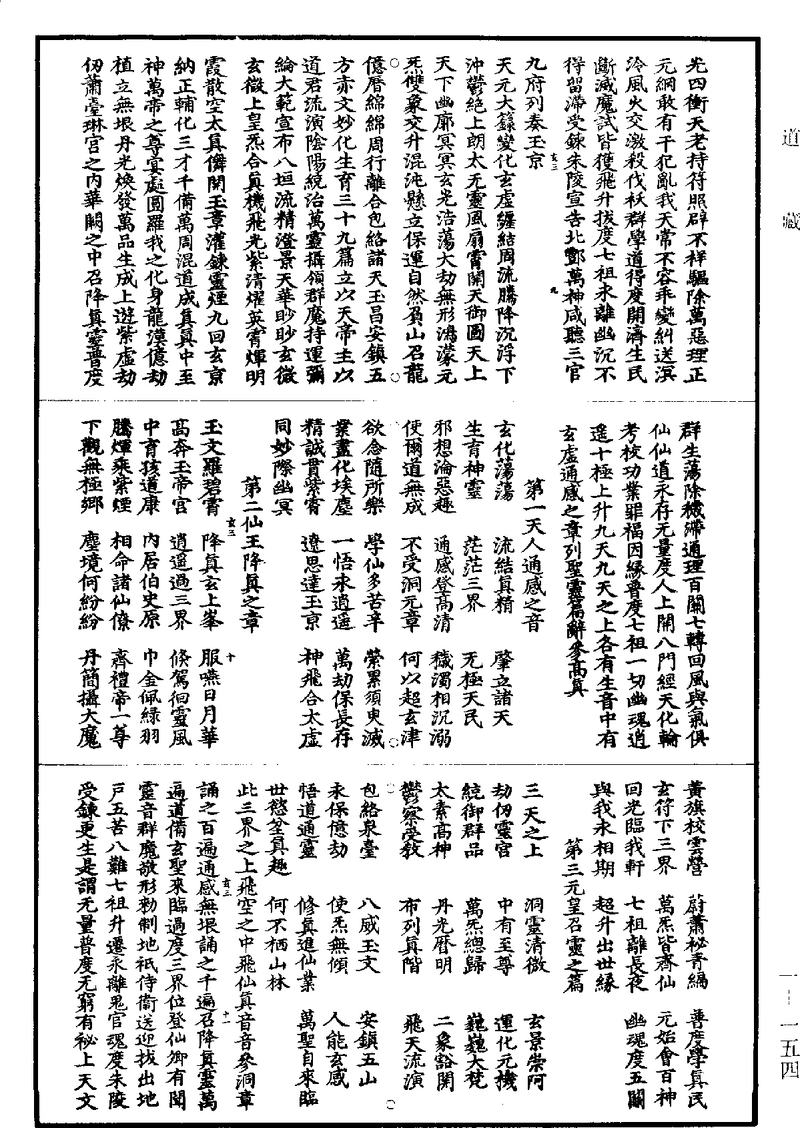 道藏
光四衝天老持符照辟不祥驅除萬惡理正
元綱敢有干犯亂我天常不容乖變糾送溟
泠風火交激殺伐祅群學道得度開濟生民
斷滅魔試皆獲飛升拔度七祖永離幽沉不
得留滯受鍊朱陵宣告北酆萬神咸聽三官
九府列奏玉京
天元大籙變化玄虛纏結周流騰降沉浮下
沖鬱絕上朗太无靈風扇霄開天御圖天上
天下幽廓冥冥玄光浩蕩大劫無形鴻濛元
炁雙象交升混沌懸立保運自然負山召龍
億曆綿綿周行離合包絡諸天玉昌安鎮五
方赤文妙化生育三十九篇立以天帝主以
道君流演陰陽統治萬靈攝領群魔持運彌
綸大範宣布八垣流精澄景天華眇眇玄微
玄微上皇炁合真機飛光紫清燿英霄煇明
霞散空太真儛開玉章灌鍊靈煙九回玄京
納正輔化三才千備萬周混道成真真中至
神萬帝之尊宴處圓羅我之化身龍漢億劫
植立無垠丹光煥發萬品生成上遊紫虛劫
仞蕭臺琳宮之內華闕之中召降真靈普度
群生蕩除穢滯通理百關七轉回風與氣俱
仙仙道永存无量度人上開八門經天化輪
考校功業罪福因緣普度七祖一切幽魂逍
遥十極上升九天九天之上各有生音中有
玄虛通感之章列聖靈篇辭參高真
第一天人通感之音
玄化蕩蕩 流結真精 肇立諸天
生育神靈 茫茫三界 无極天民
邪想淪惡趣 通感登高清 穢濁相沉溺
使爾道無成 不受洞元章 何以超玄津
欲念隨所樂 學仙多苦辛 縈累須臾滅
業盡化埃塵 一悟永逍遥 萬劫保長存
精誠貫紫霄 遼思達玉京 神飛合太虛
同妙際幽冥
第二仙王降真之章
玉文羅碧霄 降真玄上峯 服嚥日月華
高奔玉帝宮 逍遥過三界 倏駕徊靈風
中育孩道康 內居伯史原 巾金佩綠羽
騰煇乘紫煙 相命諸仙僚 齊禮帝一尊
下觀無極鄉 塵境何紛紛 丹簡攝大魔
黃旗校雲營 蔚蕭祕青編 善度學真民
玄符下三界 萬炁皆齊仙 元始會百神
回光臨我軒 七祖離長夜 幽魂度五關
與我永相期 超升出世緣
第三元皇召靈之篇
三天之上 洞靈清微 玄景崇阿
劫仞靈官 中有至尊 運化元機
統御群品 萬炁總歸 巍巍大梵
太素高神 丹光曆明 二象豁開
鬱察受教 布列真階 飛天流演
包絡泉臺 八威玉文 安鎮五山
永保億劫 使炁無傾 人能玄感
悟道通靈 修真進仙業 萬聖自來臨
世慾坌真趣 何不栖山林
此三界之上飛空之中飛仙真音音參洞章
誦之百遍通感無垠誦之千遍召降真靈萬
遍道備玄聖來臨過度三界位登仙卿有聞
靈音群魔敬形勅制地祇侍衛送迎拔出地
戶五苦八難七祖升遷永離鬼官魂度朱陵
受鍊更生是謂无量普度无窮有祕上天文
一——一五四